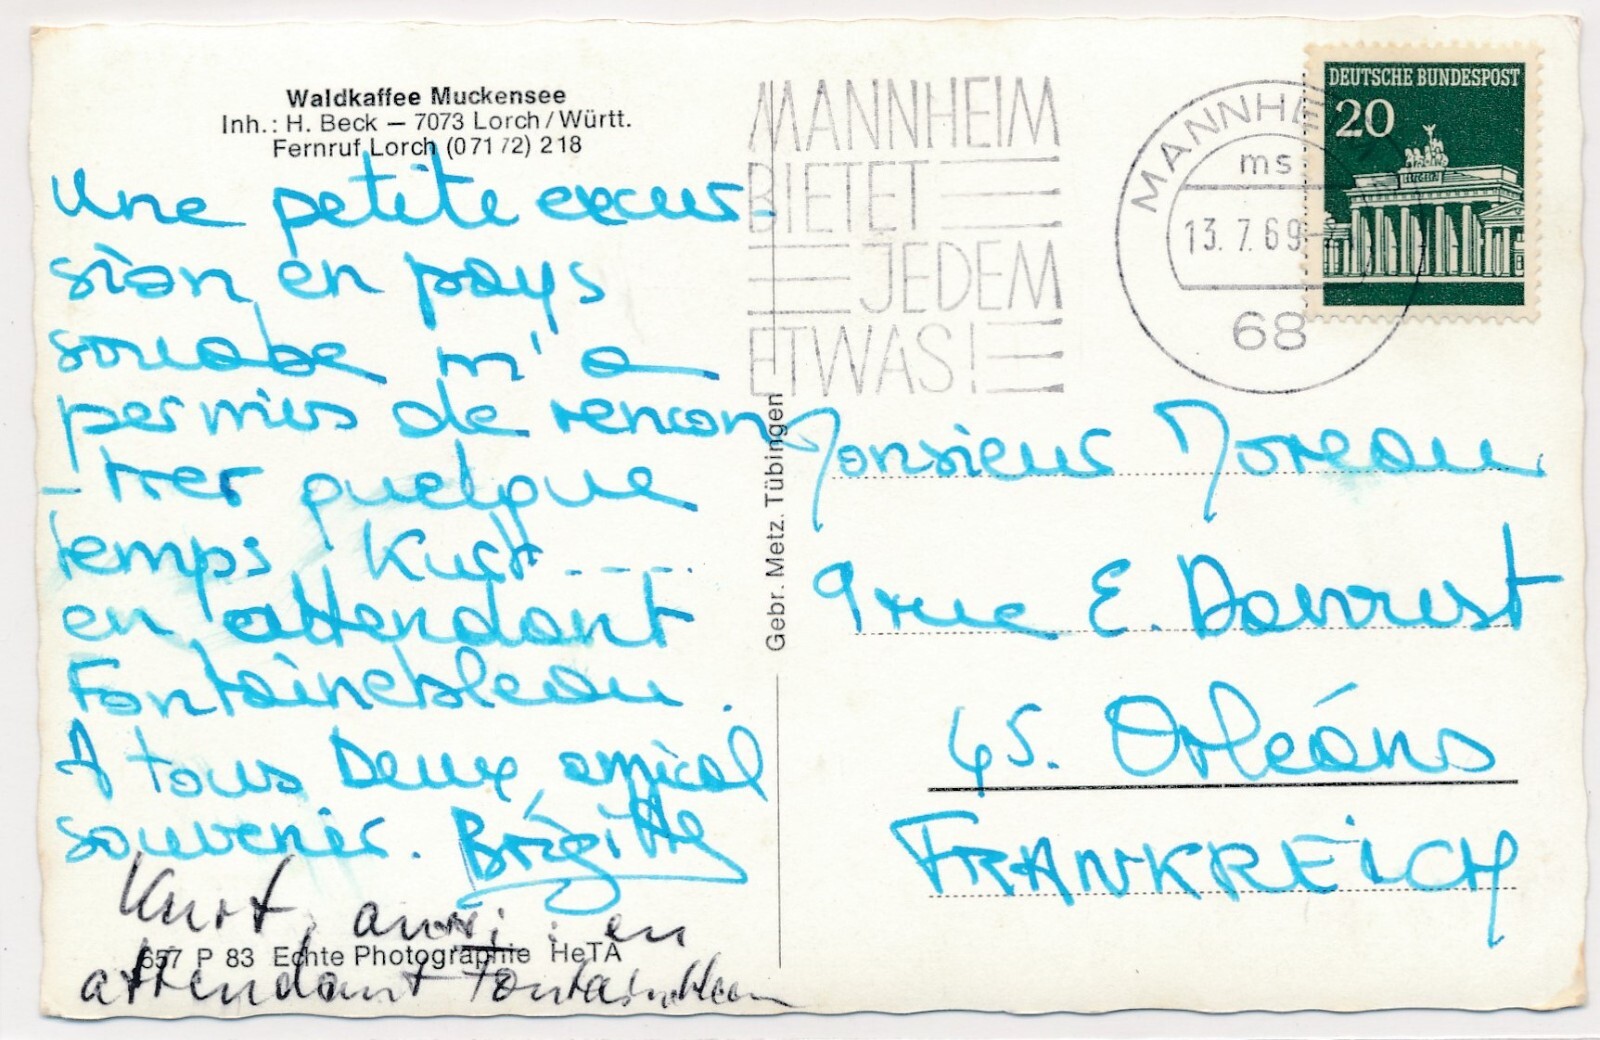 Waldkaffee Muckensee
Inh.: H. Beck — 7073 Lorch/Württ.
Fernruf Lorch (07172) 218
Une petite excur-
sion en pays
souabe m'a
permis de rencon
-trer quelque
temps Kurt .....
en attendant
Fontainebleau.
A tous Deux amical
souvenir. Brigitte
Kurt, aussi: en
attendant Fontainebleau
657 P 83 Echte Photographie HeTA
Gebr. Metz. Tübingen
MANNHEIM
BIETET
JEDEM
ETWAS!
MANNHEIM
ms
13.7.69
68
DEUTSCHE BUNDESPOST
20
Monsieur Moreau
9 rue E. Davoust
45. Orléans
FRANKREICH